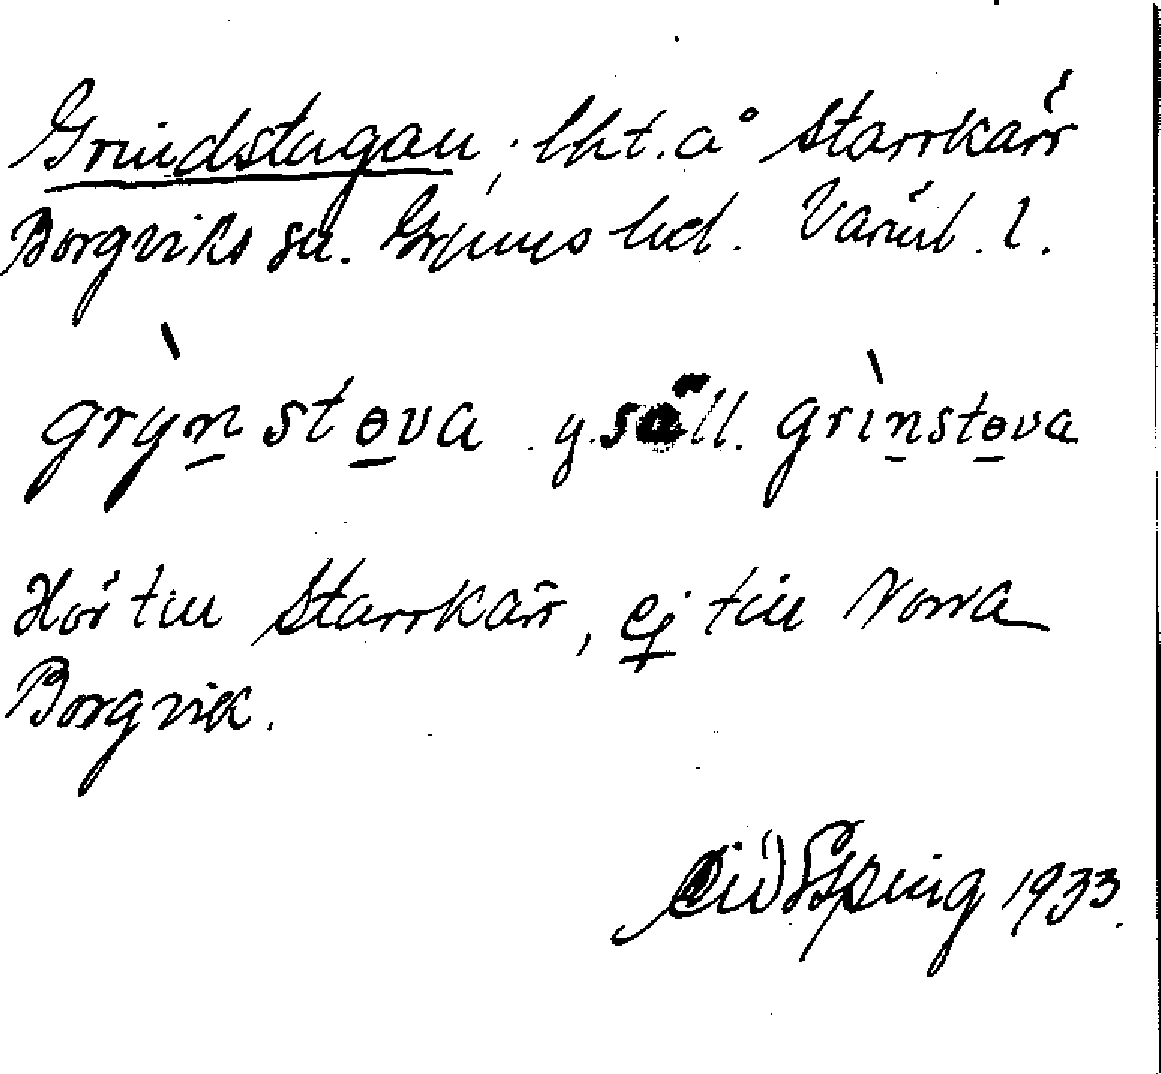 Grindstugan, lht. å Starrkärr
Borgviks sn. Grums hd. Värml. l.
grỳn̲stɵ̲va y. säll. grìn̲stɵ̲va
Hör till Starrkärr, ej till Norra
Borgvik.
Espeing 1933.